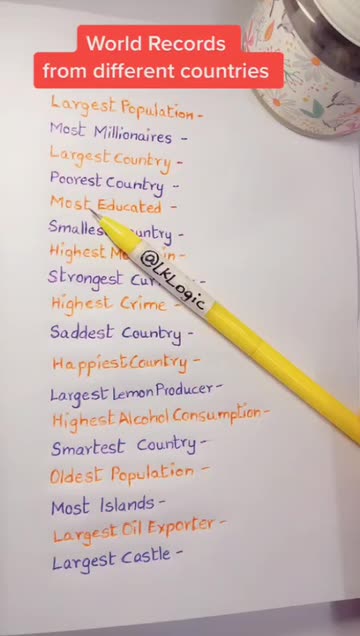 World Records
from different countries
Largest Population -
Most Millionaires -
Largest Country -
Poorest Country -
Most Educated -
Smallest untry -
Highest M in -
Strongest Cur
@LKLogic
Highest Crime -
Saddest Country -
Happiest Country -
Largest Lemon Producer -
Highest Alcohol Consumption -
Smartest Country -
Oldest Population -
Most Islands -
Largest Oil Exporter -
Largest Castle -